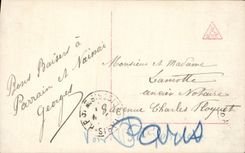 Bons Baisers à
Parrain et
Georges
Monsieur et Madame
Lamotte
ancien Notaire
avenue Charles Floquet
Paris